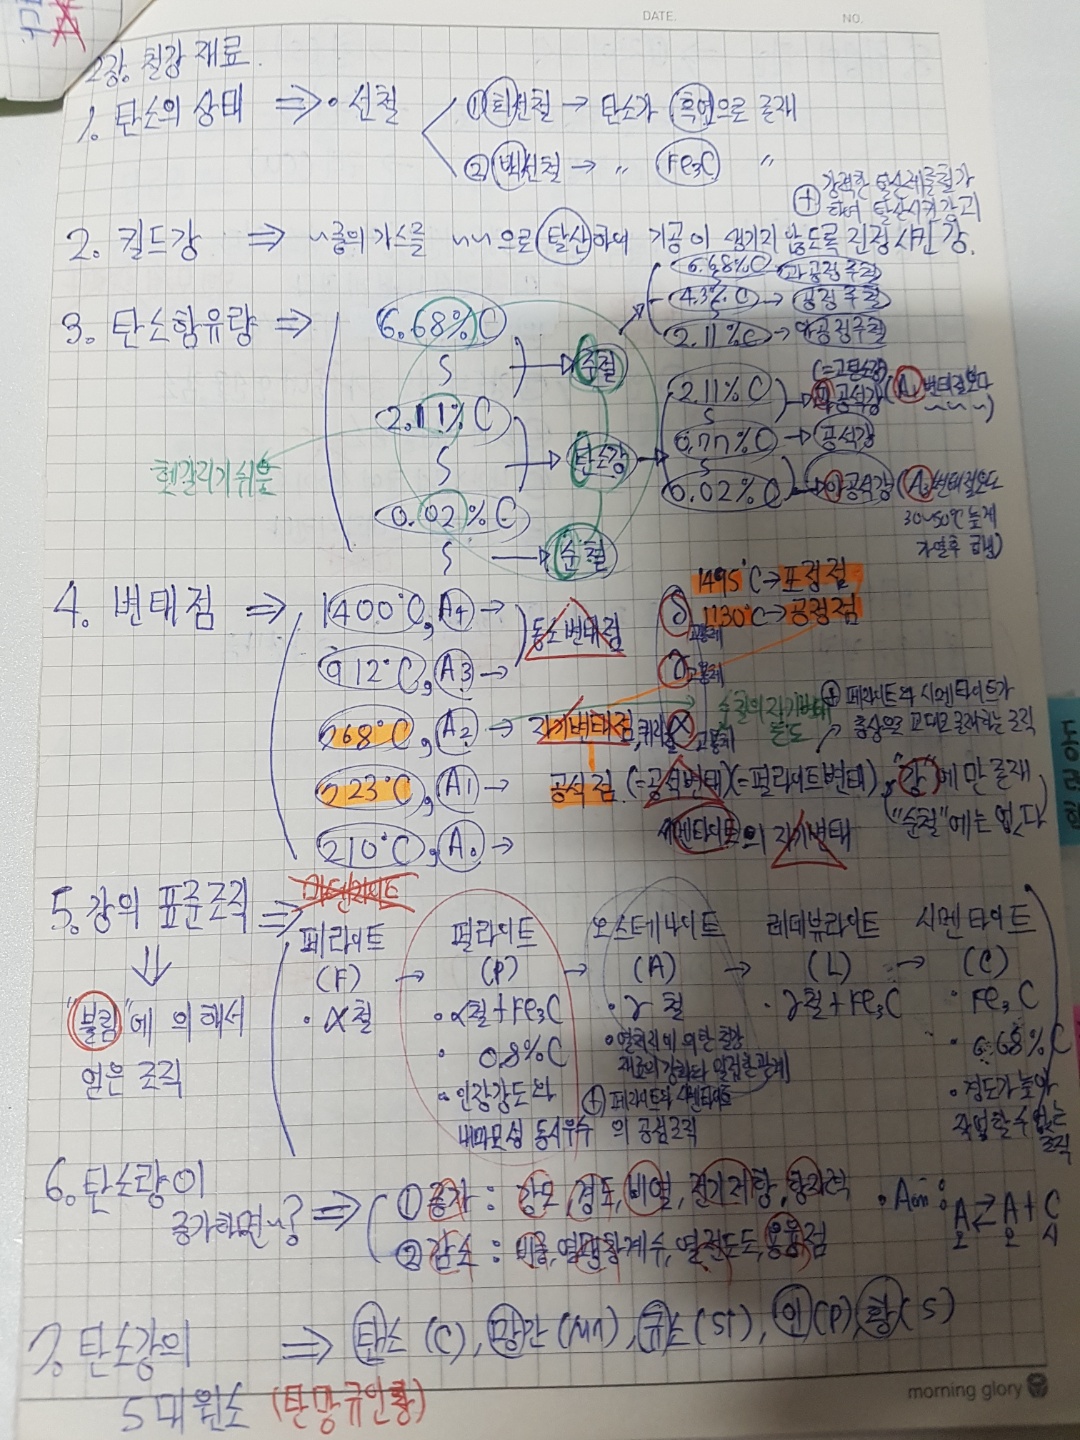 DATE.
NO.
2강. 철강 재료.
1. 탄소의 상태 ⇒ • 선철
① 회선철 → 탄소가 흑연으로 존재
② 백선철 → 〃 Fe₃C 〃
⊕ 강력한 탈산제를 첨가
하여 탈산시켜가고
2. 킬드강 ⇒ ~중의 가스를 ~~으로 탈산하여 기공이 생기지 않도록 진정시킨 강.
3. 탄소함유량 ⇒
6.68%C
S
→ 주철
2.11%C
S
→ 탄소강
0.02%C
S → 순철
6.68%C → 과공정주철
S
4.3%C → 공정주철
S
2.11%C → 아공정주철
2.11%C
(=고탄소강)
→ 과공석강 (A₁ 변태점보다 ~~~)
S
0.77%C → 공석강
S
0.02%C → 아공석강 (A₃변태점보다
30~50℃ 높게
가열후
헷갈리기쉬움
4. 변태점 ⇒
1400℃, A4 →
912℃, A3 →
동소변태점
768℃, A2 → 자기변태점, 퀴리점
723℃, A1 → 공석점 (=공석변태)(=펄라이트변태), "강"에만 존재
"순철"에는 없다
210℃, A₀ → 시멘타이트의 자기변태
1495℃ → 포정점
1130℃ → 공정점
δ 고용체
γ 고용체
α 고용체
순철의 자기변태
온도
⊕ 페라이트와 시멘타이트가
층상으로 교대로 존재하는 조직
5. 강의 표준조직 ⇒
"불림"에 의해서
얻은 조직
페라이트 펄라이트 오스테나이트 레데뷰라이트 시멘타이트
(F) → (P) → (A) → (L) → (C)
• α철
• α철+Fe₃C
• 0.8%C
• 인장강도와
내마모성 동시우수
• γ철
• 열처리에 의한 철강
재료의 강화와 밀접한관계
⊕ 페라이트와 시멘타이트
의 공석조직
• γ철+Fe₃C
• Fe₃C
• 6.68%C
• 경도가 높아
작업할수 없는
조직
6. 탄소량이
증가하면~? ⇒
① 증가 : 강도, 경도, 비열, 전기저항, 항자력
② 감소 : 비중, 열팽창계수, 열전도도, 용융점
• Acm :
A⇄A+C
2 2 4
7. 탄소강의 ⇒ 탄소 (C), 망간 (Mn), 규소 (Si), 인(P), 황(S)
5대원소 (탄망규인황)
morning glory